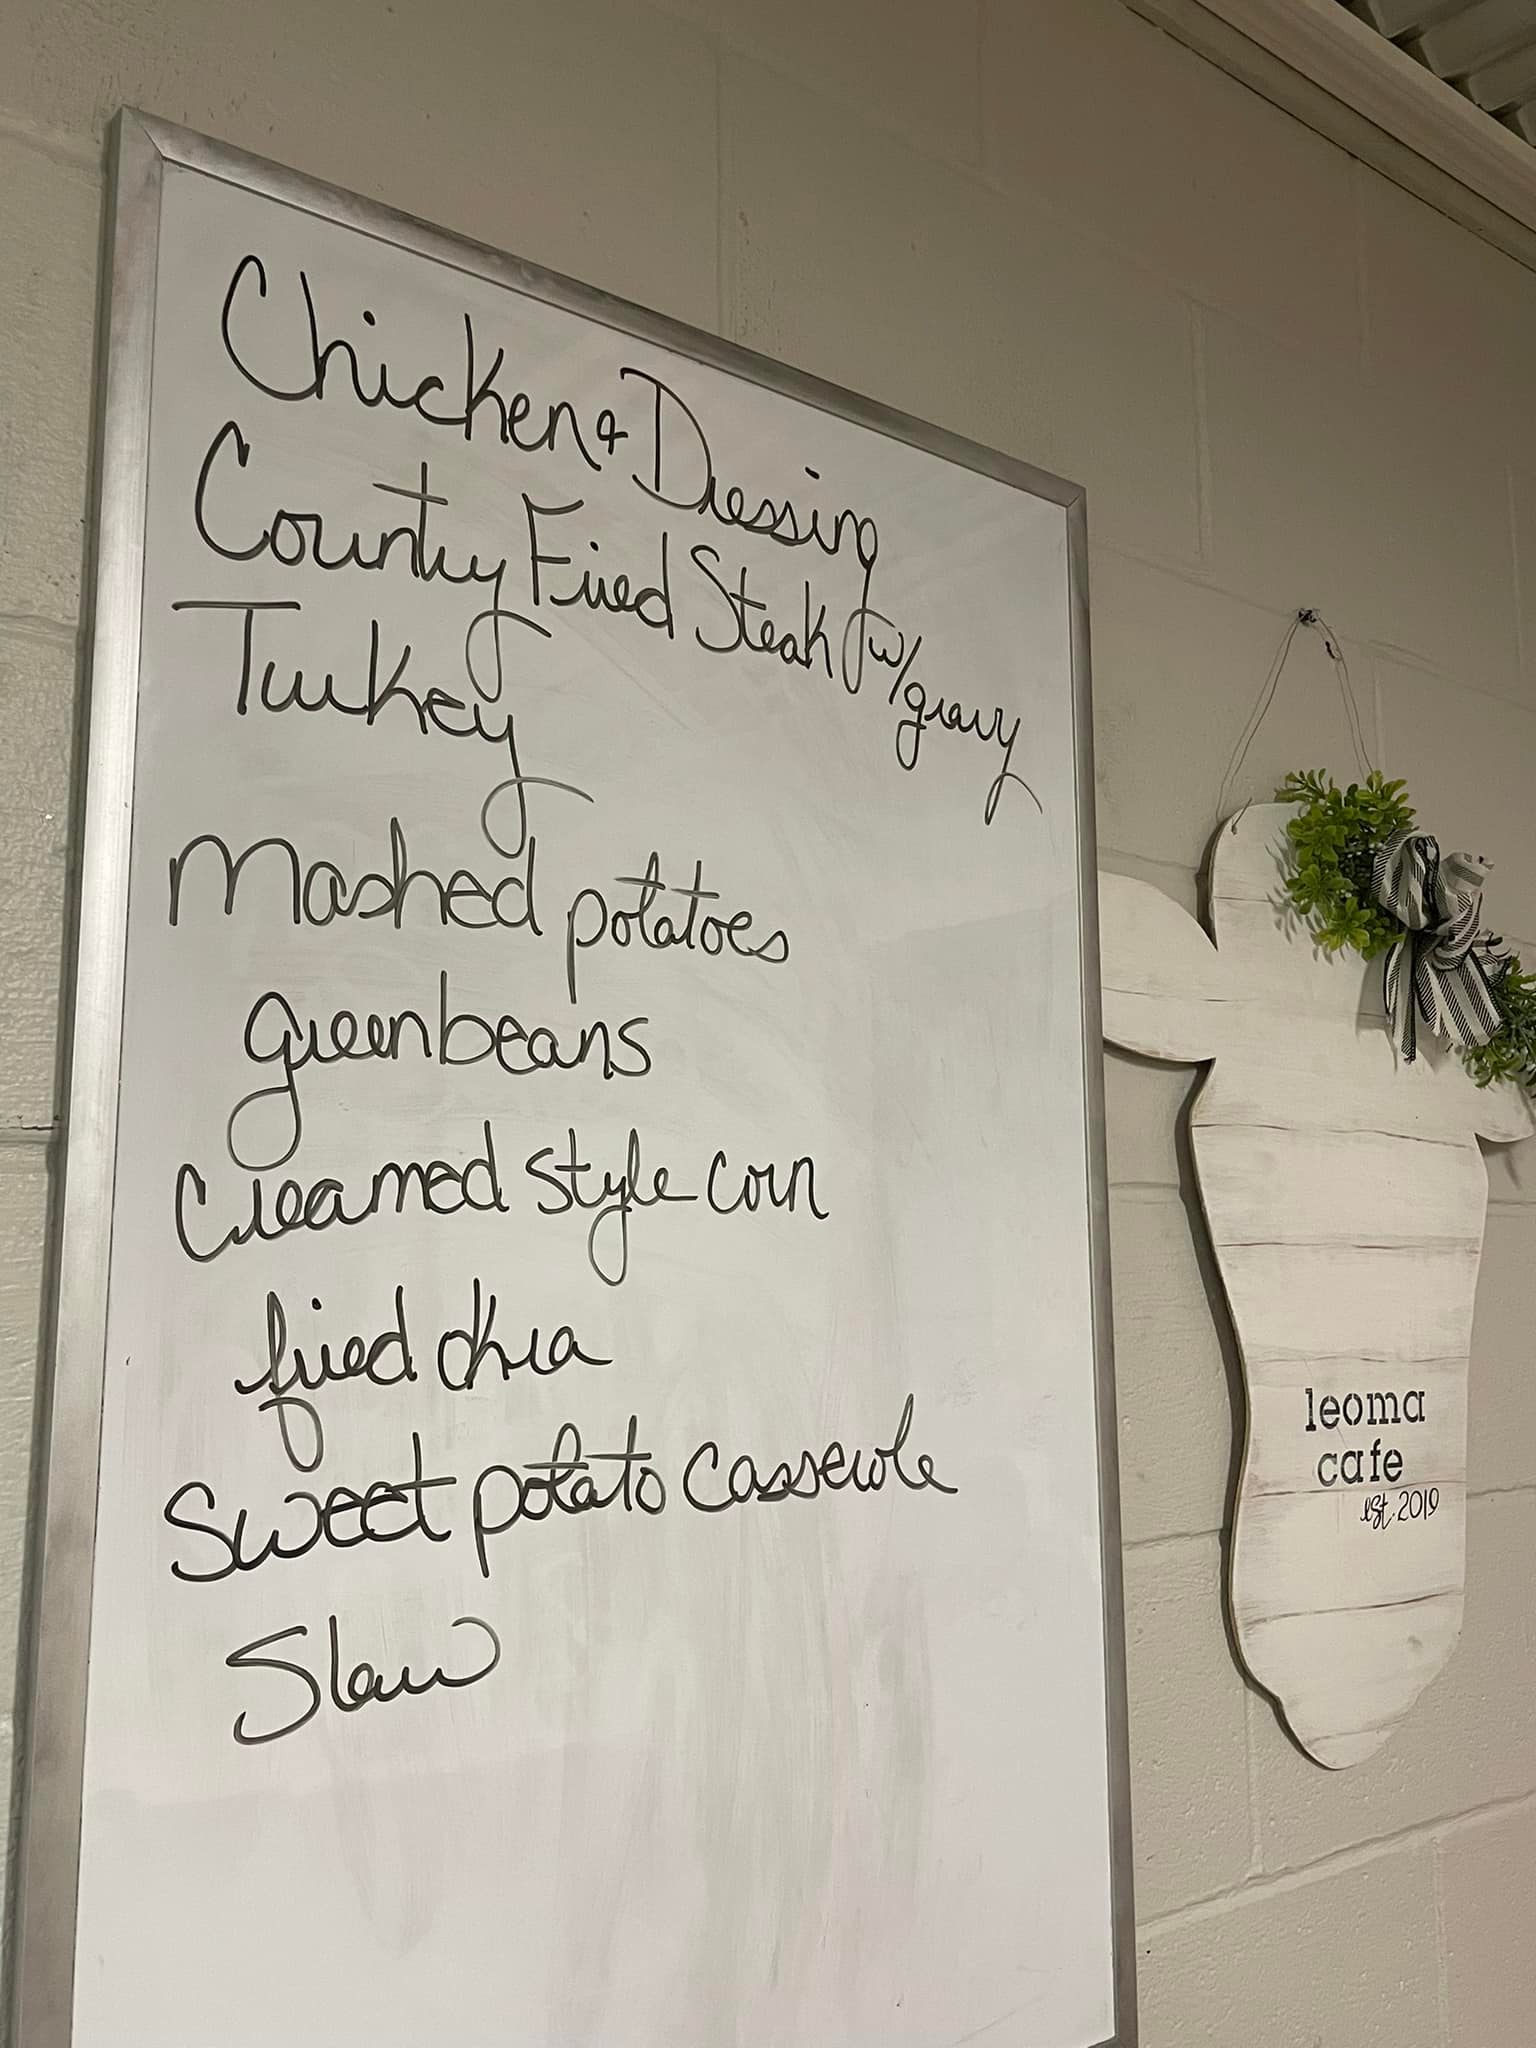 Chicken & Dressing
Country Fried Steak w/gravy
Turkey
Mashed potatoes
greenbeans
Creamed style corn
fried okra
Sweet potato casserole
Slaw
leoma
cafe
est. 2019